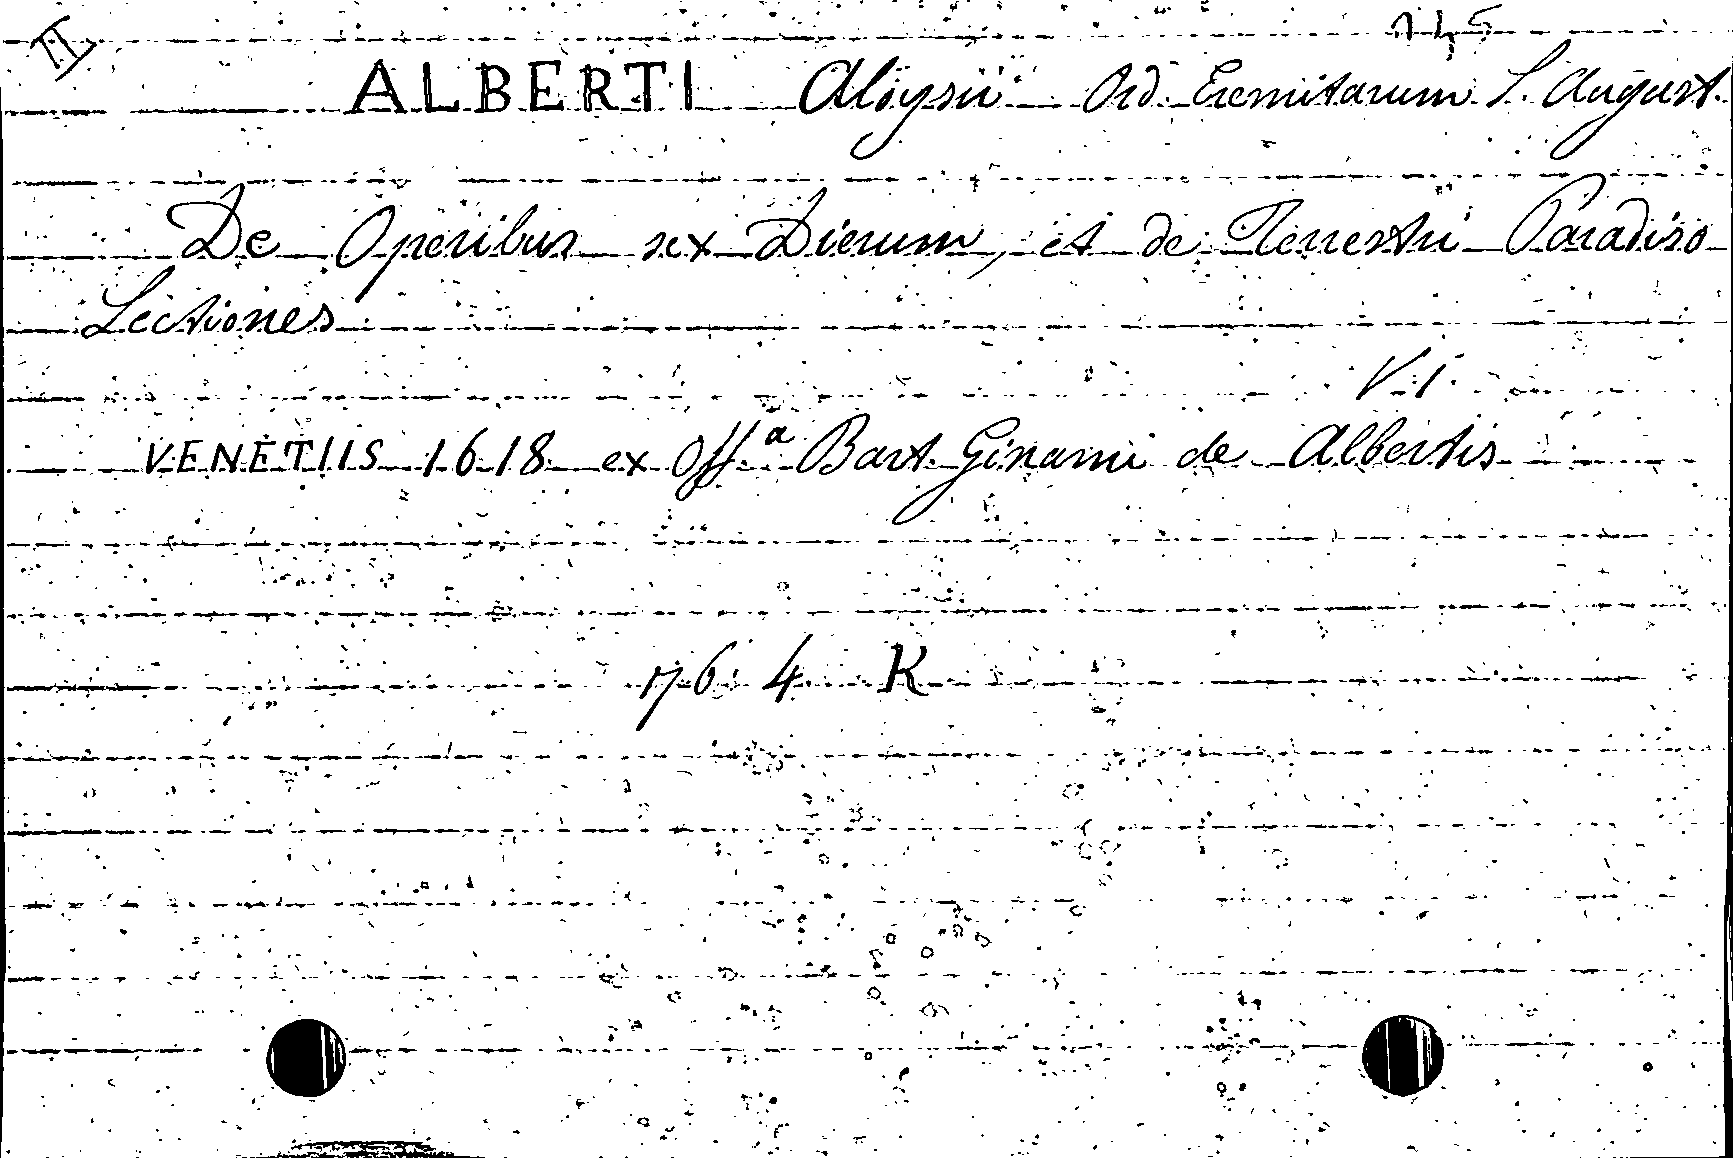 II
ALBERTI Aloysii Ord. Eremitarum S. August.
De Operibus sex Dierum, et de Terrestri Paradiso
Lectiones
V. 1.
VENETIIS 1618 ex Offª Bart. Ginami de Albertis
76 4 K